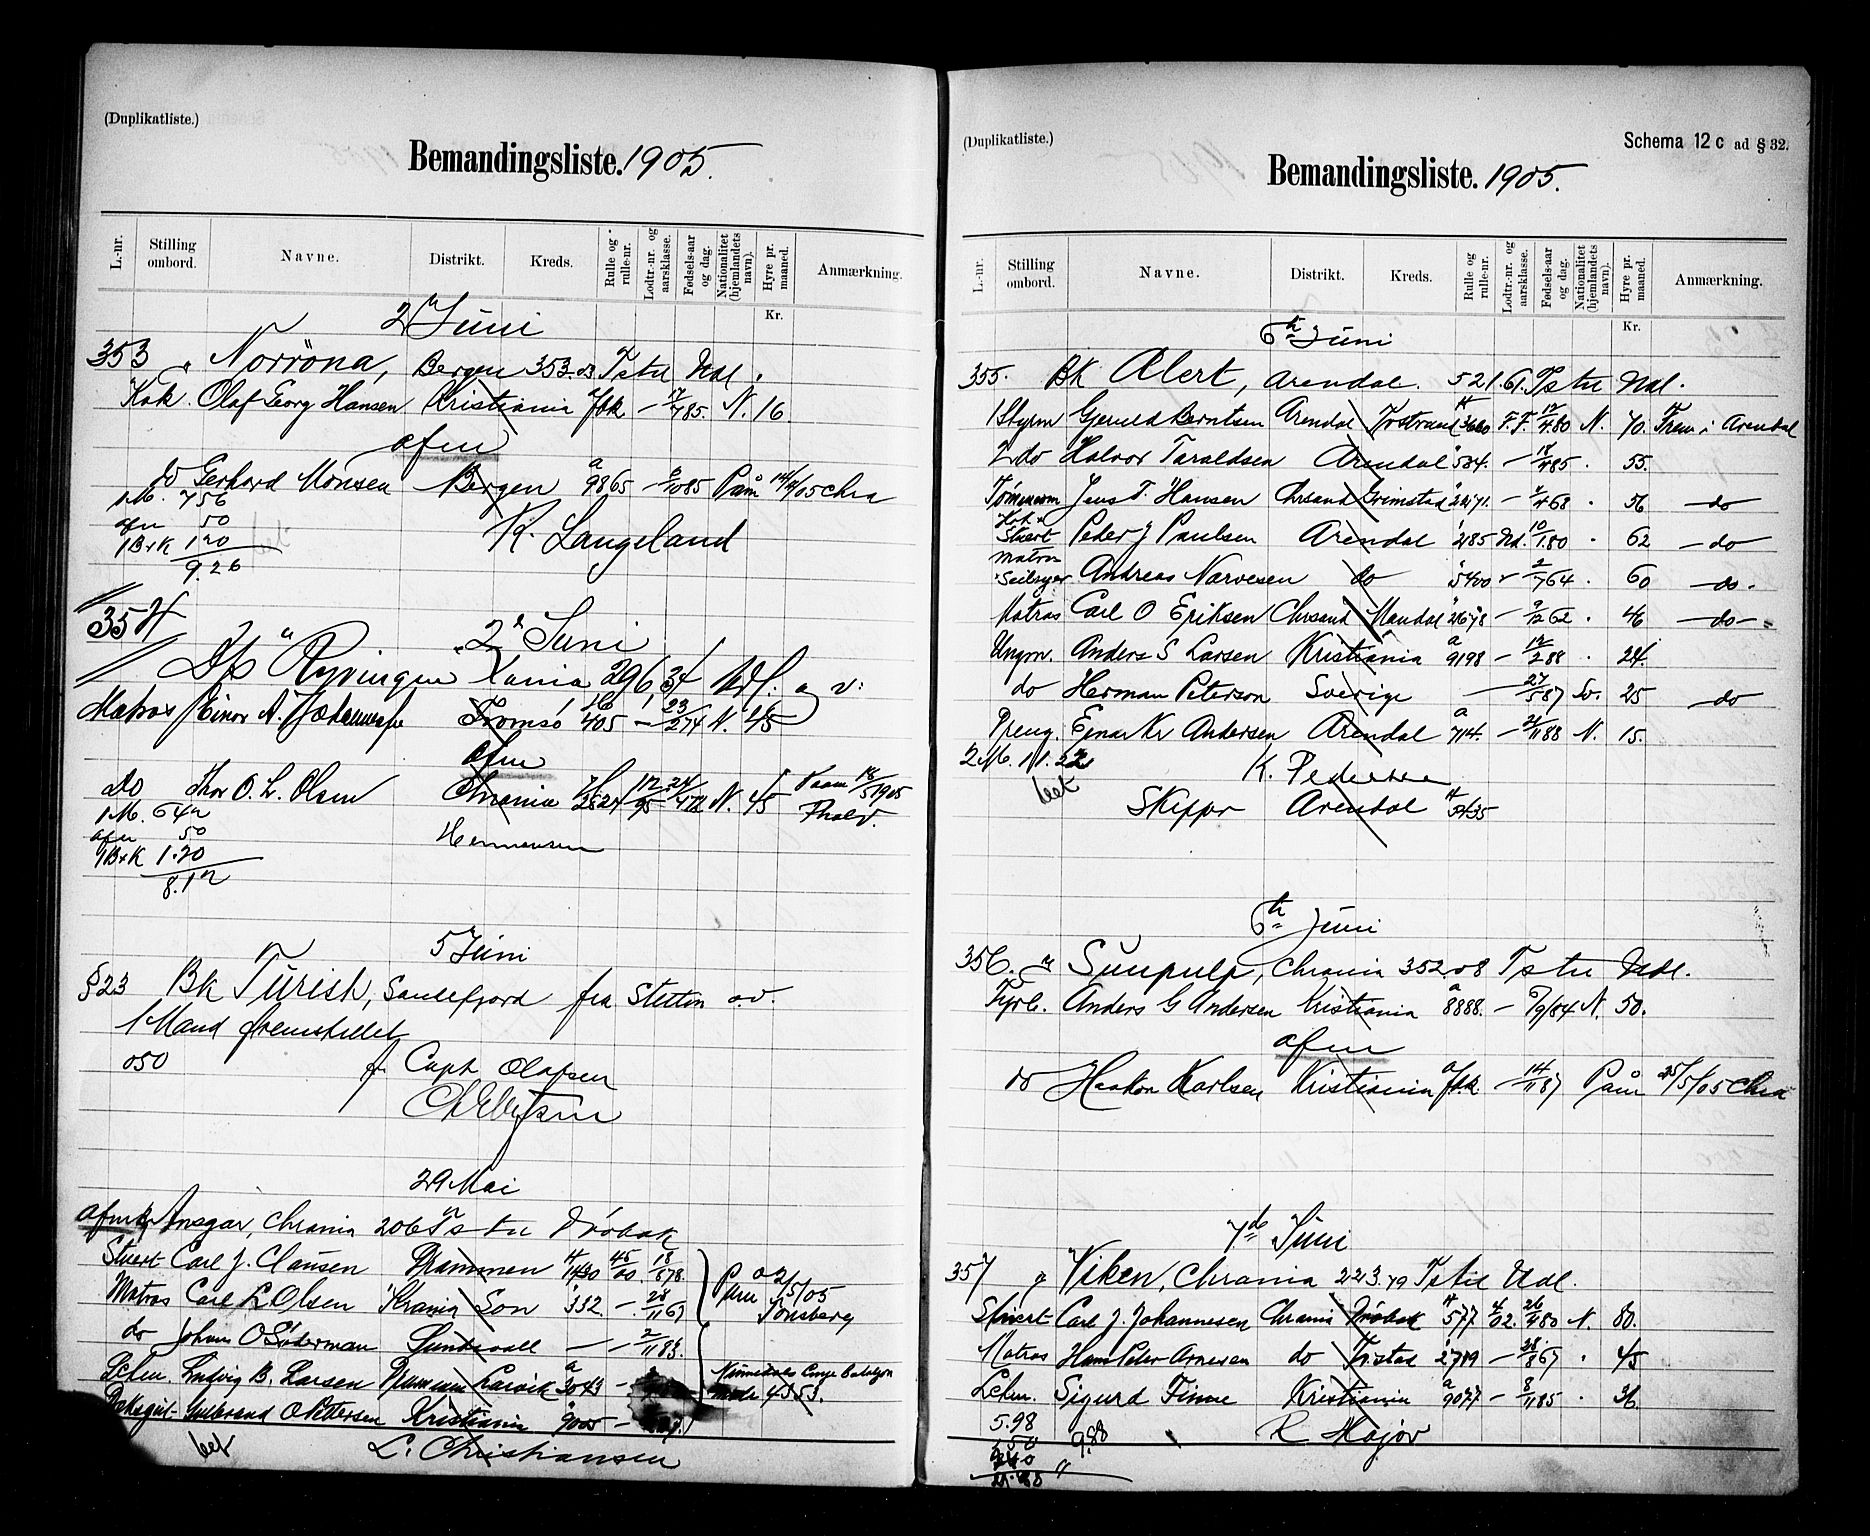 (Duplikatliste.)
Bemandingsliste. 1905.
L.-nr. Stilling ombord. Navne. Distrikt. Kreds. Rulle og rulle-nr. Lodtr.-nr. og aarsklasse. Fødsels-aar og dag. Nationalitet (hjemlandets navn). Hyre pr. maaned. Anmærkning.
Kr.
2 Juni
353 Norröna, Bergen 353.03 Tstu Udl.
Kok Olaf Georg Hansen Kristiania fbk — 785. N. 16
afm
do Gerhard Monsen Bergen a 9865 — 1085 Paam 05 Chra
1 M. 756
afm 50
1 B+K 120
9.26
K. Langeland
354
2 Juni
Ds Ryvingen Xania 296,34 Udl.
Matros Einar A. Tromsö 405 — 23/274 N. 45
afm
Do Thor O. L. Olsen Chrania 2524 12/95 24/ N. 45 Paam 18/5 1905
1 M. 642
afm 50
1 B+K 1.20
8.12
Hermansen
5 Juni
§23 Bk Turist, Sandefjord fra Stettin o.v.
1 Mand fremstillet
050 f. Capt Olafsen
29 Mai
afmk Ansgar, Chrania 206 Tstu Dröbak
Stuert Carl J. Clausen Drammen 1430 45/00 18/578.
Matros Carl L Olsen Krania Son 332. — 28/1167 Paam 2/5/05 Tönsberg
do Johan O Söderman Sundsvall — — 2/1183.
Letm. Ludvig B. Larsen Drammen Larvik a 3043 —
Dæksgut Gulbrand O Pettersen Kristiania 9005 —
bet L. Christiansen
(Duplikatliste.)
Schema 12 c ad § 32.
Bemandingsliste. 1905.
L.-nr. Stilling ombord. Navne. Distrikt. Kreds. Rulle og rulle-nr. Lodtr.-nr. og aarsklasse. Fødsels-aar og dag. Nationalitet (hjemlandets navn). Hyre pr. maaned. Anmærkning.
Kr.
6te Juni
355. Bk Alert, Arendal. 521.61. Tstu Udl.
1 Styrm Gjeruld Berntsen Arendal 3660 F.F. 12/480 N. 70. Frem i Arendal
2 do Halvor Taraldsen Arendal 534. — 18/485 . 55.
Tömmerm Jens T. Hansen Chrsand Grimstad 2271. — /468 . 56 —do
Kok + Stuert Peder J Paulsen Arendal 2185 Ud. 10/180 . 62 —do
Matros Seilsyer Andreas Narvesen do 5400 — 2/764 . 60 —do-
Matros Carl O Eriksen Chrsand Mandal 2678 — 9/1262 . 46 —do—
Ungm. Anders S Larsen Kristiania a 9198 — 12/288 . 24.
do Herman Peterson Sverige — 27/587 Sv. 25 —do
Preng. Ejnar Kr Andersen Arendal a 714. — 21/1188 N. 15.
2 M. 11.22
bet
K. Pedersen
Skippr Arendal 5435
6te Juni
356. Sunpulp, Chrania 352.08 Tstu Udl.
Fyrb. Anders G Andersen Kristiania a 8888. — /9/84 N. 50.
afm
do Haakon Karlsen Kristiania a fbk. — 14/1187 Paam 25/5/05 Chra
7de Juni
357 Viken, Chrania 223.79 Tstu Udl.
Stuert Carl J. Johannesen Chrania Dröbak 577 4/02. 26/480 N. 80.
Matros Hans Peter Arnesen do Fr.stad 2789 — 28/867 . 45
Letm. Sigurd Finne Kristiania a 9077 — 8/1185 . 36.
5.98
R Major
9.88